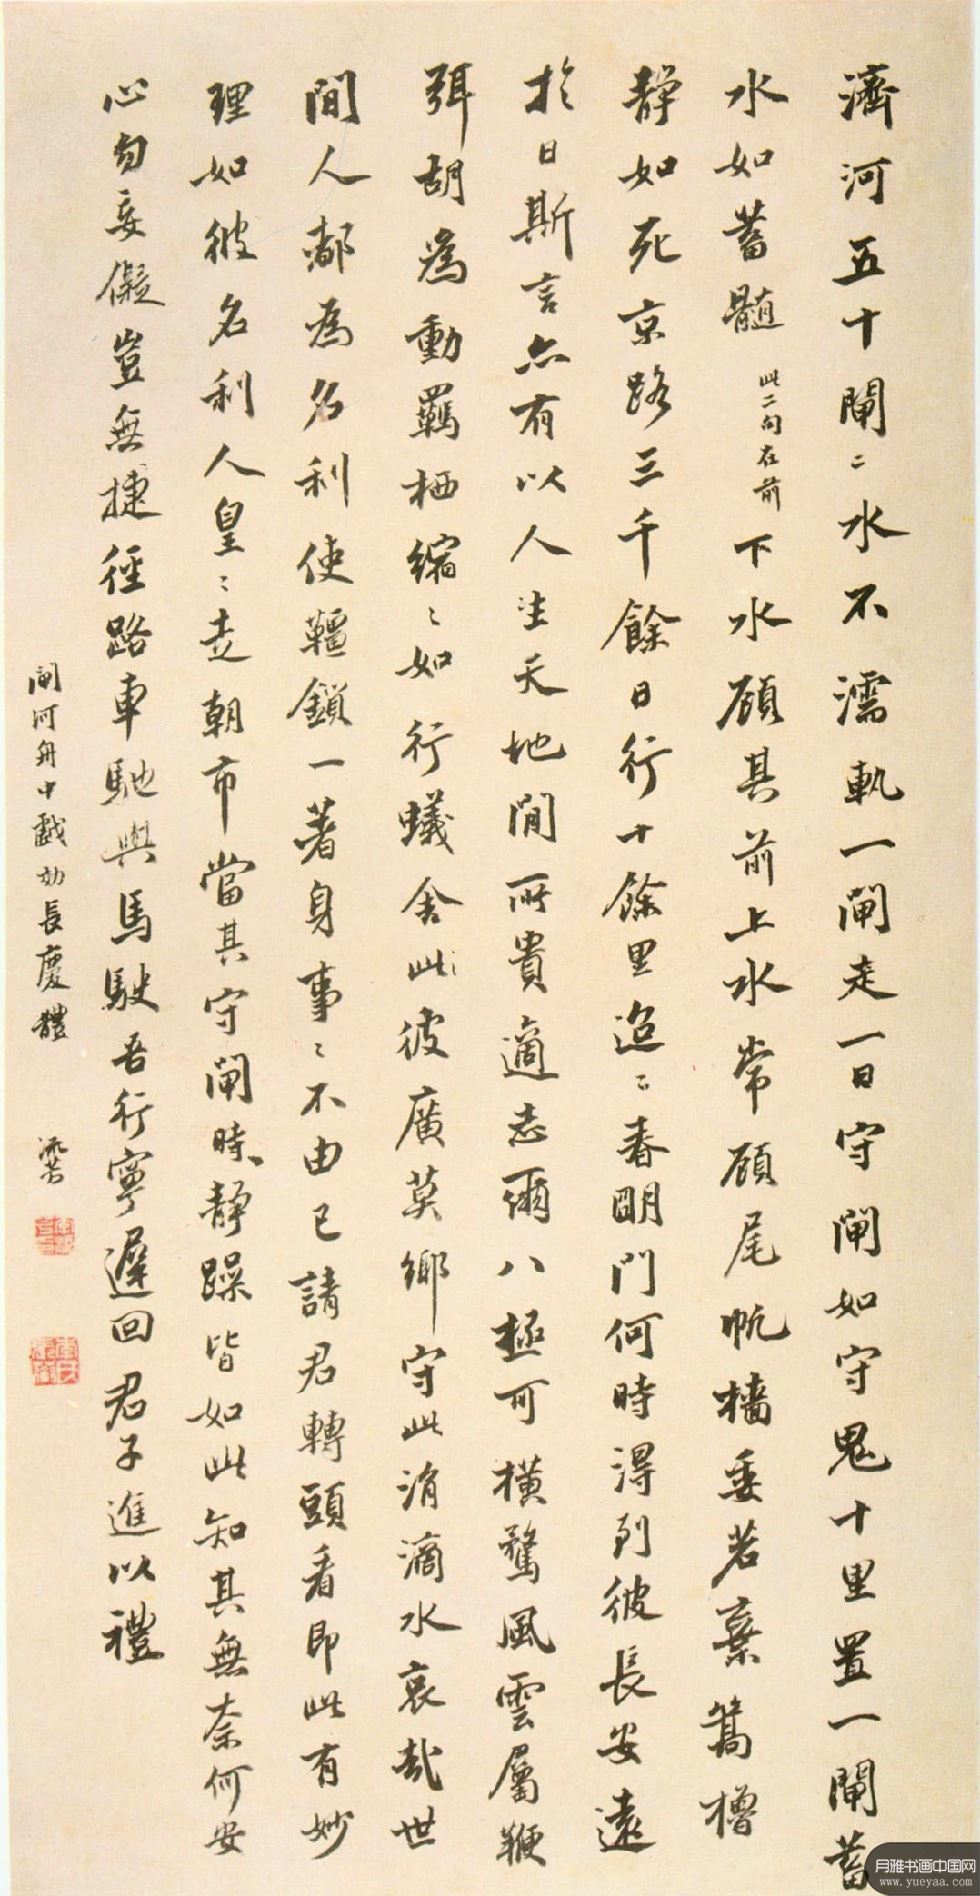 濟河五十閘〻水不濡軌一閘走一日守閘如守鬼十里置一閘蓄
水如蓄髓此二句在前下水顧其前上水常顧尾帆檣委若棄篙櫓
靜如死京路三千餘日行十餘里迢〻春明門何時得到彼長安遠
於日斯言亦有以人生天地間所貴適志爾八極可橫騖風雲屬鞭
弭胡為動羈栖縮〻如行蟻舍此彼廣莫鄉守此涓滴水哀哉世
間人都為名利使韁鎖一著身事〻不由己請君轉頭看即此有妙
理如彼名利人皇〻走朝市當其守閘時靜躁皆如此知其無奈何安
心勿妄儗豈無捷徑路車馳與馬駛吾行寧遲回君子進以禮
閘河舟中戲効長慶體
月雅书画中国网
www.yueyaa.com